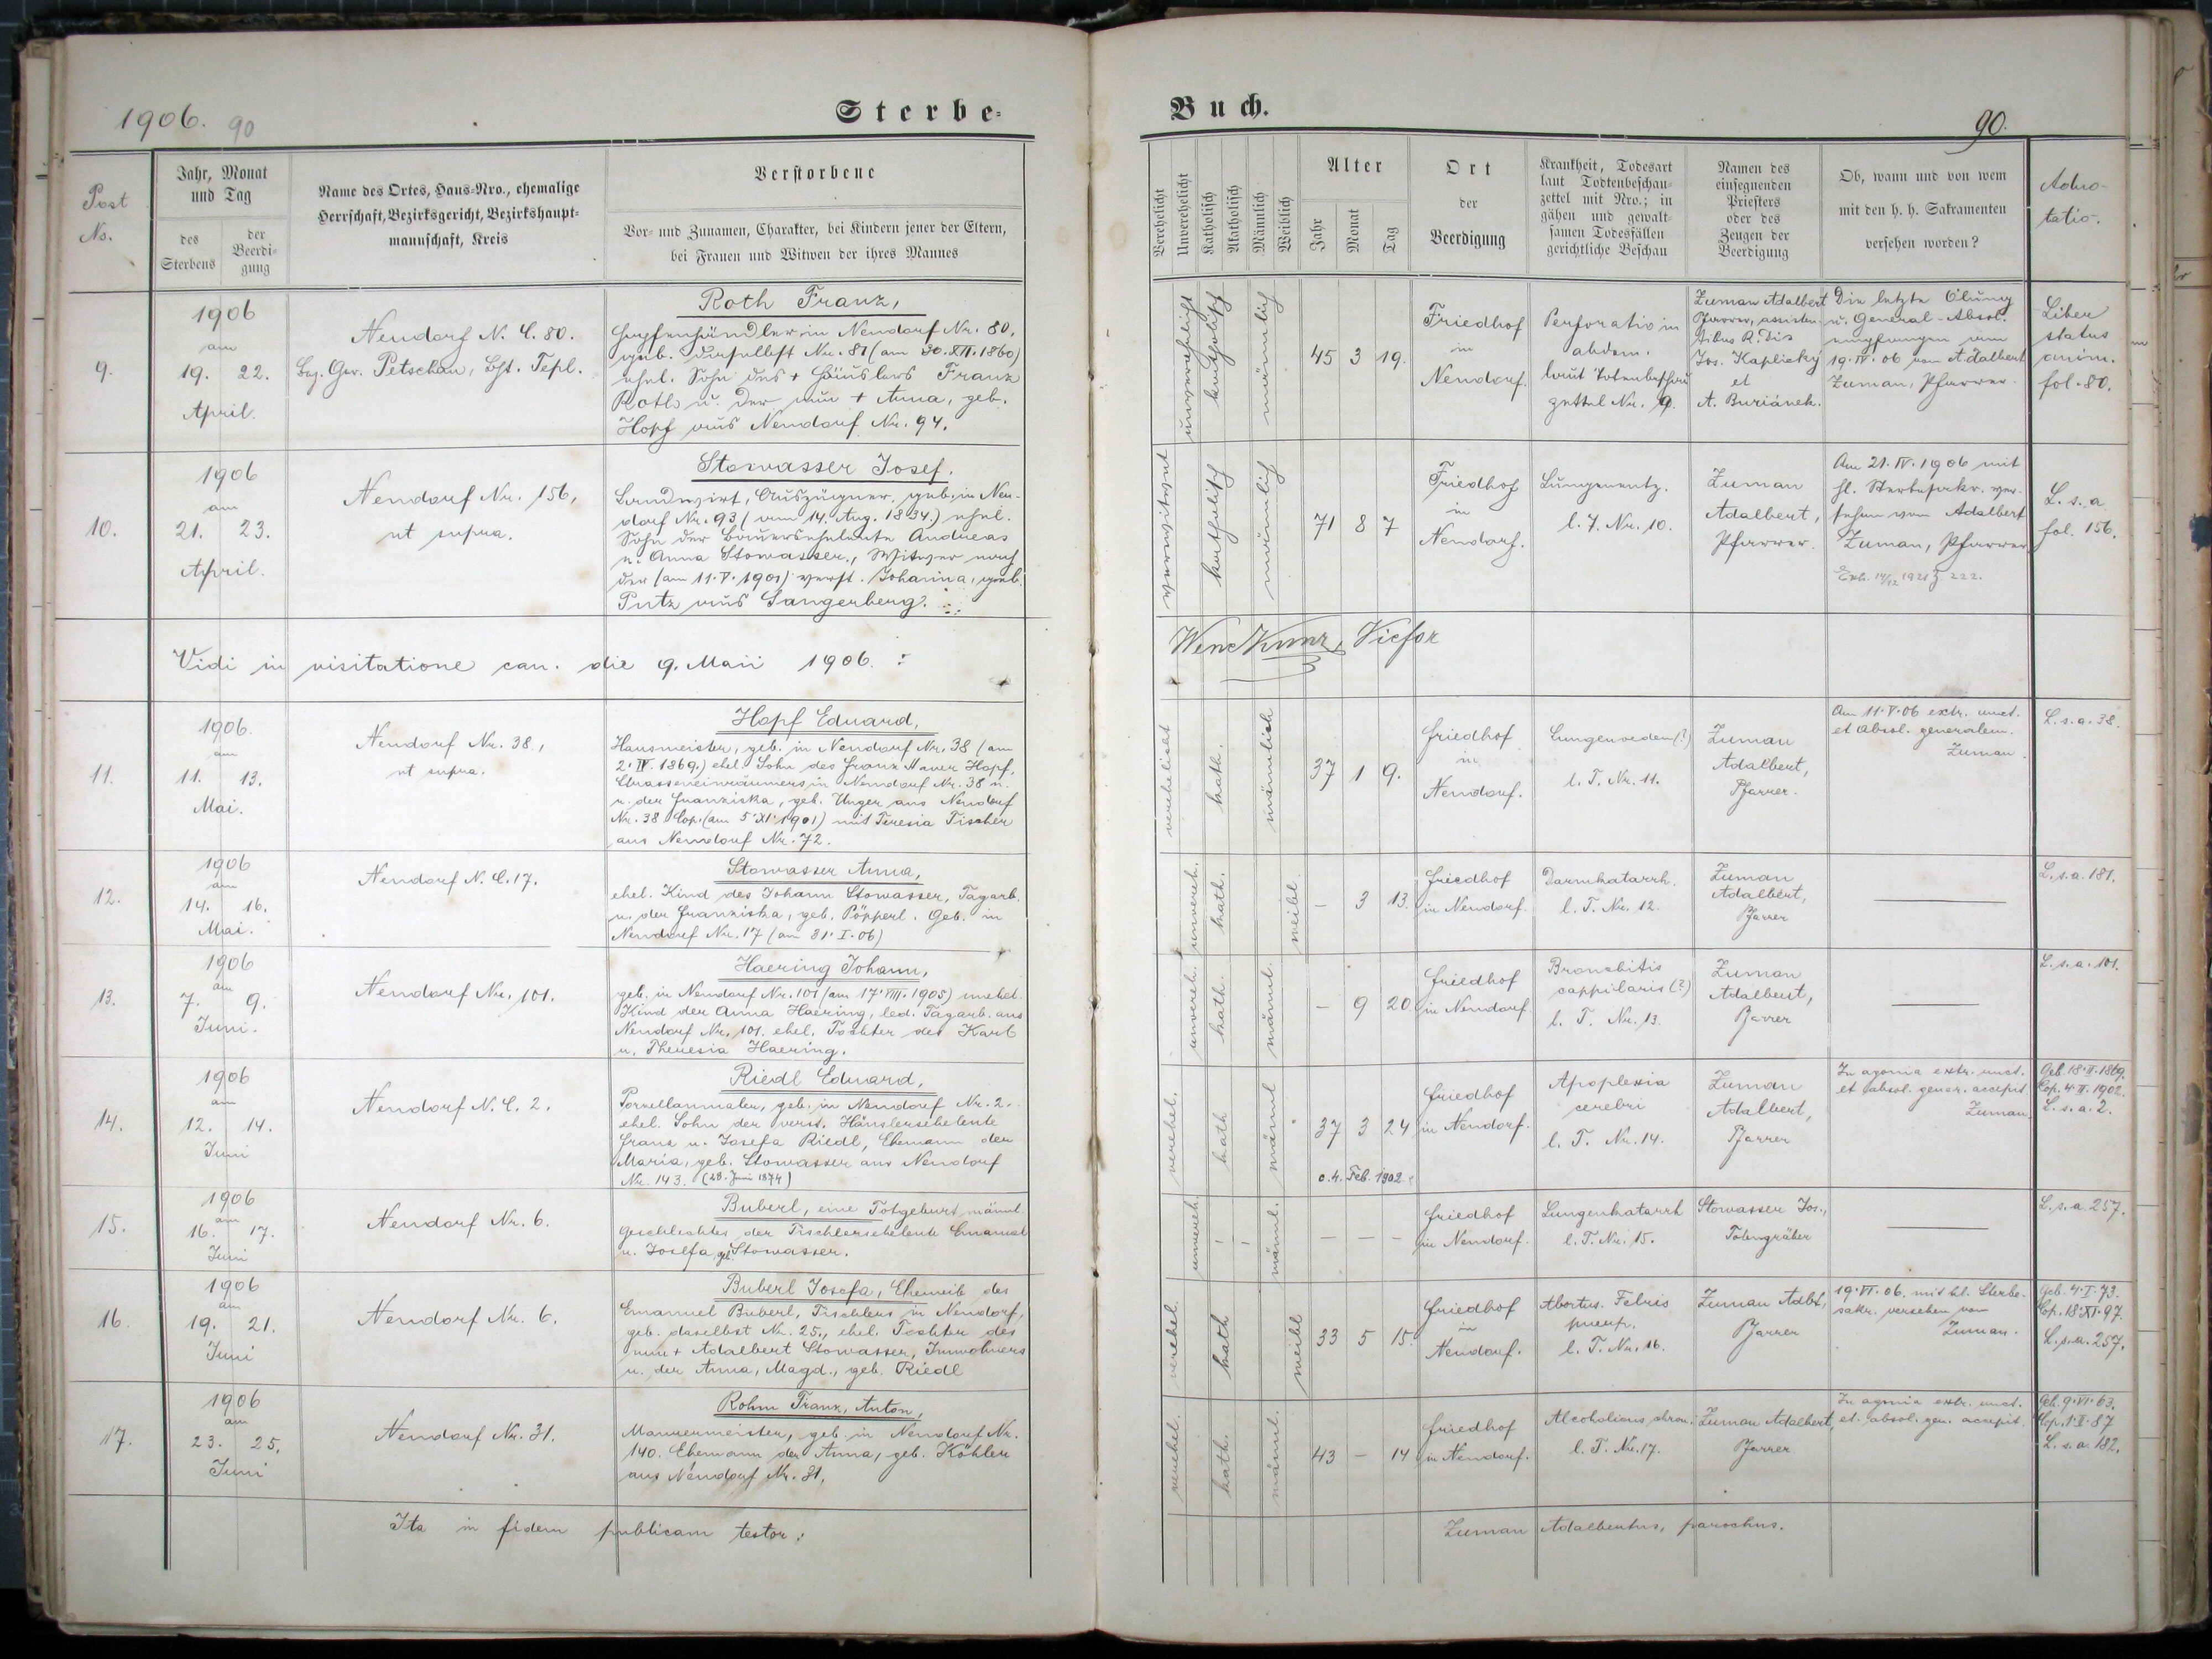 1906. 90
Sterbe-
Post No.
Jahr, Monat und Tag
des Sterbens
der Beerdi-gung
Name des Ortes, Haus-Nro., ehemalige
Herrschaft, Bezirksgericht, Bezirkshaupt-
mannschaft, Kreis
Verstorbene
Vor- und Zunamen, Charakter, bei Kindern jener der Eltern,
bei Frauen und Witwen der ihres Mannes
9.
1906
am
19. 22.
April.
Neudorf N. C. 80.
Bez. Ger. Petschau, Tepl.
Roth Franz,
Hopfenhändler in Neudorf Nr. 80,
geb. daselbst Nr. 81 (am 30. XII. 1860)
ehel. Sohn des + Häuslers Franz
Roth u. der nun + Anna, geb.
Hopf aus Neudorf Nr. 94.
10.
1906
am
21. 23.
April.
Neudorf Nr. 156,
ut supra.
Stowasser Josef.
Landwirt, Auszügner, geb. in Neu-
dorf Nr. 93 (am 14. Aug. 1834.) ehel.
Sohn der Bauerseheleute Andreas
u. Anna Stowasser, Witwer nach
der (am 11. V. 1901) verst. Johanna, geb.
Putz aus Sangerberg.
Vidi in visitatione can. die 9. Maii 1906. :
11.
1906.
am
11. 13.
Mai.
Neudorf Nr. 38,
ut supra.
Hopf Eduard,
Hausmeister, geb. in Neudorf Nr. 38 (am
2. IV. 1869.) ehel. Sohn des Franz Hopf,
Strasseneinräumers in Neudorf Nr. 38 u.
u. der Franziska, geb. Unger aus Neudorf
Nr. 38 Cop. (am 5. XI. 1901) mit Teresia Tischer
aus Neudorf Nr. 72.
12.
1906
am
14. 16.
Mai.
Neudorf N. C. 17.
Stowasser Anna,
ehel. Kind des Johann Stowasser, Tagarb.
u. der Franziska, geb. Pöpperl. Geb. in
Neudorf Nr. 17 (am 31. I. 06)
13.
1906
am
7. 9.
Juni.
Neudorf Nr. 101.
Haering Johann,
geb. in Neudorf Nr. 101 (am 17. VIII. 1905) unehel.
Kind der Anna Haering, led. Tagarb. aus
Neudorf Nr. 101, ehel. Tochter des Karl
u. Theresia Haering.
14.
1906
am
12. 14.
Juni
Neudorf N. C. 2.
Riedl Eduard,
Porzellanmaler, geb. in Neudorf Nr. 2.
ehel. Sohn der verst. Häuslerseheleute
Franz u. Josefa Riedl, Ehemann der
Maria, geb. Stowasser aus Neudorf
Nr. 143. (28. Juni 1874)
15.
1906
am
16. 17.
Juni
Neudorf Nr. 6.
Buberl, eine Totgeburt männl.
Geschlechtes der Tischlerseheleute Emanuel
u. Josefa geb. Stowasser.
16.
1906
am
19. 21.
Juni
Neudorf Nr. 6.
Buberl Josefa, Eheweib des
Emanuel Buberl, Tischlers in Neudorf,
geb. daselbst Nr. 25., ehel. Tochter des
nun + Adalbert Stowasser, Inwohners
u. der Anna, Magd., geb. Riedl
17.
1906
am
23. 25.
Juni
Neudorf Nr. 31.
Rohm Franz, Anton,
Maurermeister, geb. in Neudorf Nr.
140. Ehemann der Anna, geb. Köhler
aus Neudorf Nr. 31.
Ita in fidem publicam testor:
Buch.
90.
Verehelicht
Unverehelicht
Katholisch
Akatholisch
Männlich
Weiblich
Alter
Jahr
Monat
Tag
Ort
der
Beerdigung
Krankheit, Todesart
laut Todtenbeschau-
zettel mit Nro.; in
gähen und gewalt-
samen Todesfällen
gerichtliche Beschau
Namen des
einsegnenden
Priesters
oder des
Zeugen der
Beerdigung
Ob, wann und von wem
mit den h. h. Sakramenten
versehen worden?
Adno-
tatio.
unverehelicht
katholisch
männlich
45 3 19.
Friedhof
in
Neudorf.
Perforatio in
abdom.
laut Totenbeschau
zettel Nr. 9.
Zuman Adalbert
Pfarrer, assisten-
tibus R. Dis
Jos. Kaplicky
et
A. Buriánek.
Die letzte Ölung
u. General-Absol.
empfangen am
19. IV. 06 von Adalbert
Zuman, Pfarrer.
Liber
status
anim.
fol. 80.
verwitwet
katholisch
männlich
71 8 7
Friedhof
in
Neudorf.
Lungenentz.
l. T. Nr. 10.
Zuman
Adalbert,
Pfarrer.
Am 21. IV. 1906 mit
hl. Sterbesakr. ver-
sehen von Adalbert
Zuman, Pfarrer
Exh. 14/12 1921 Z. 222.
L. s. a
fol. 156.
Wenc Kunz, Vicfor
verehelicht
kath.
männlich
37 1 9.
Friedhof
in
Neudorf.
Lungenoedem (?)
l. T. Nr. 11.
Zuman
Adalbert,
Pfarrer.
Am 11. V. 06 extr. unct.
et absol. generalem.
Zuman.
L. s. a. 38.
unvereh.
kath.
weibl.
– 3 13.
Friedhof
in Neudorf.
Darmkatarrh.
l. T. Nr. 12.
Zuman
Adalbert,
Pfarrer
L. s. a. 181.
unvereh.
kath.
männl.
– 9 20
Friedhof
in Neudorf.
Bronchitis
cappilaris (?)
l. T. Nr. 13.
Zuman
Adalbert,
Pfarrer
L. s. a. 101.
verehel.
kath
männl
37 3 24
c. 4. Feb. 1902.
Friedhof
in Neudorf.
Apoplexia
cerebri
l. T. Nr. 14.
Zuman
Adalbert,
Pfarrer
In agonia extr. unct.
et absol. gener. accepit
Zuman
Geb. 18. II. 1869.
Cop. 4. II. 1902.
L. s. a. 2.
unvereh.
männl.
– – –
Friedhof
in Neudorf.
Lungenkatarrh
l. T. Nr. 15.
Stowasser Jos.,
Totengräber
L. s. a. 257.
verehel.
kath
weibl
33 5 15.
Friedhof
in
Neudorf.
Abortus. Febris
puerp.
l. T. Nr. 16.
Zuman Adbt,
Pfarrer
19. VI. 06. mit hl. Sterbe-
sakr. versehen von
Zuman.
Geb. 4. I. 73.
Cop. 18. XI. 97.
L. s. a. 257.
verehel.
kath.
männl.
43 – 14
Friedhof
in Neudorf.
Alcoholismus chron.
l. T. Nr. 17.
Zuman Adalbert,
Pfarrer
In agonia extr. unct.
et. absol. gen. accepit.
Geb. 9. VI. 63.
L. s. a. 182.
Zuman Adalbertus, parochus.